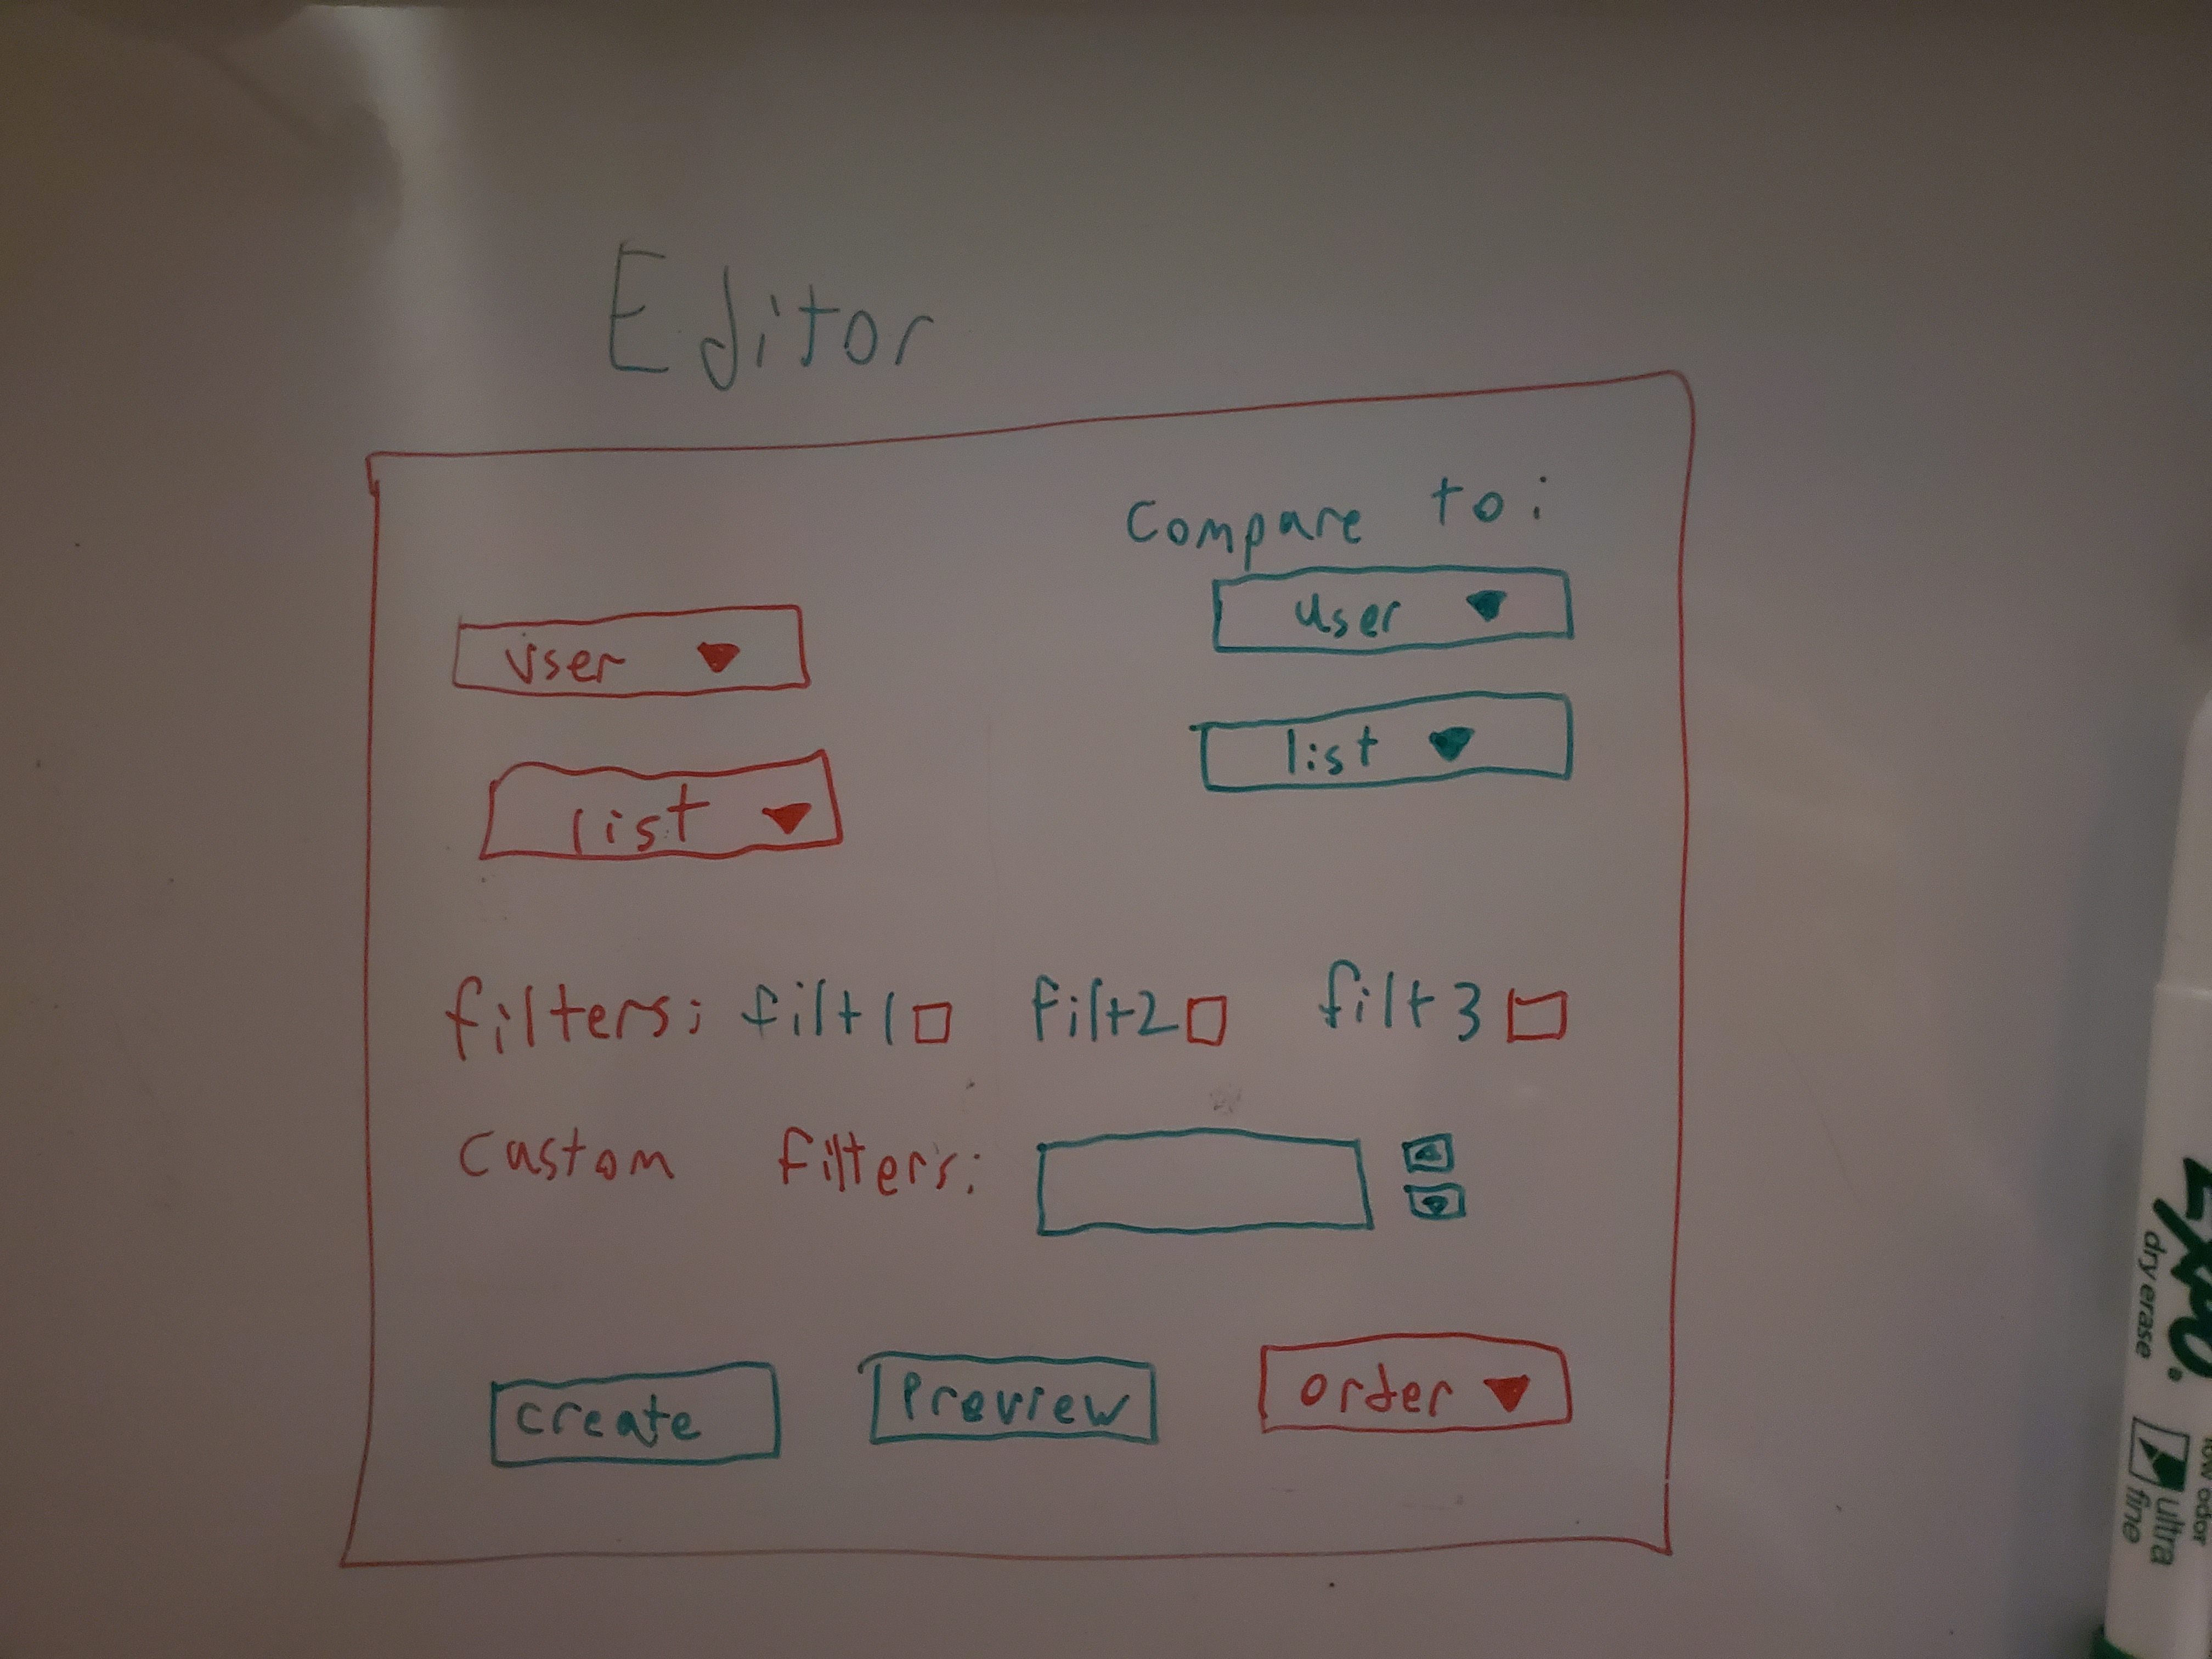 Editor
Compare to:
user
user
list
list
filters: filt1 filt2 filt3
Custom filters:
create
Preview
order
EXPO.
dry erase
low odor
ultra
fine